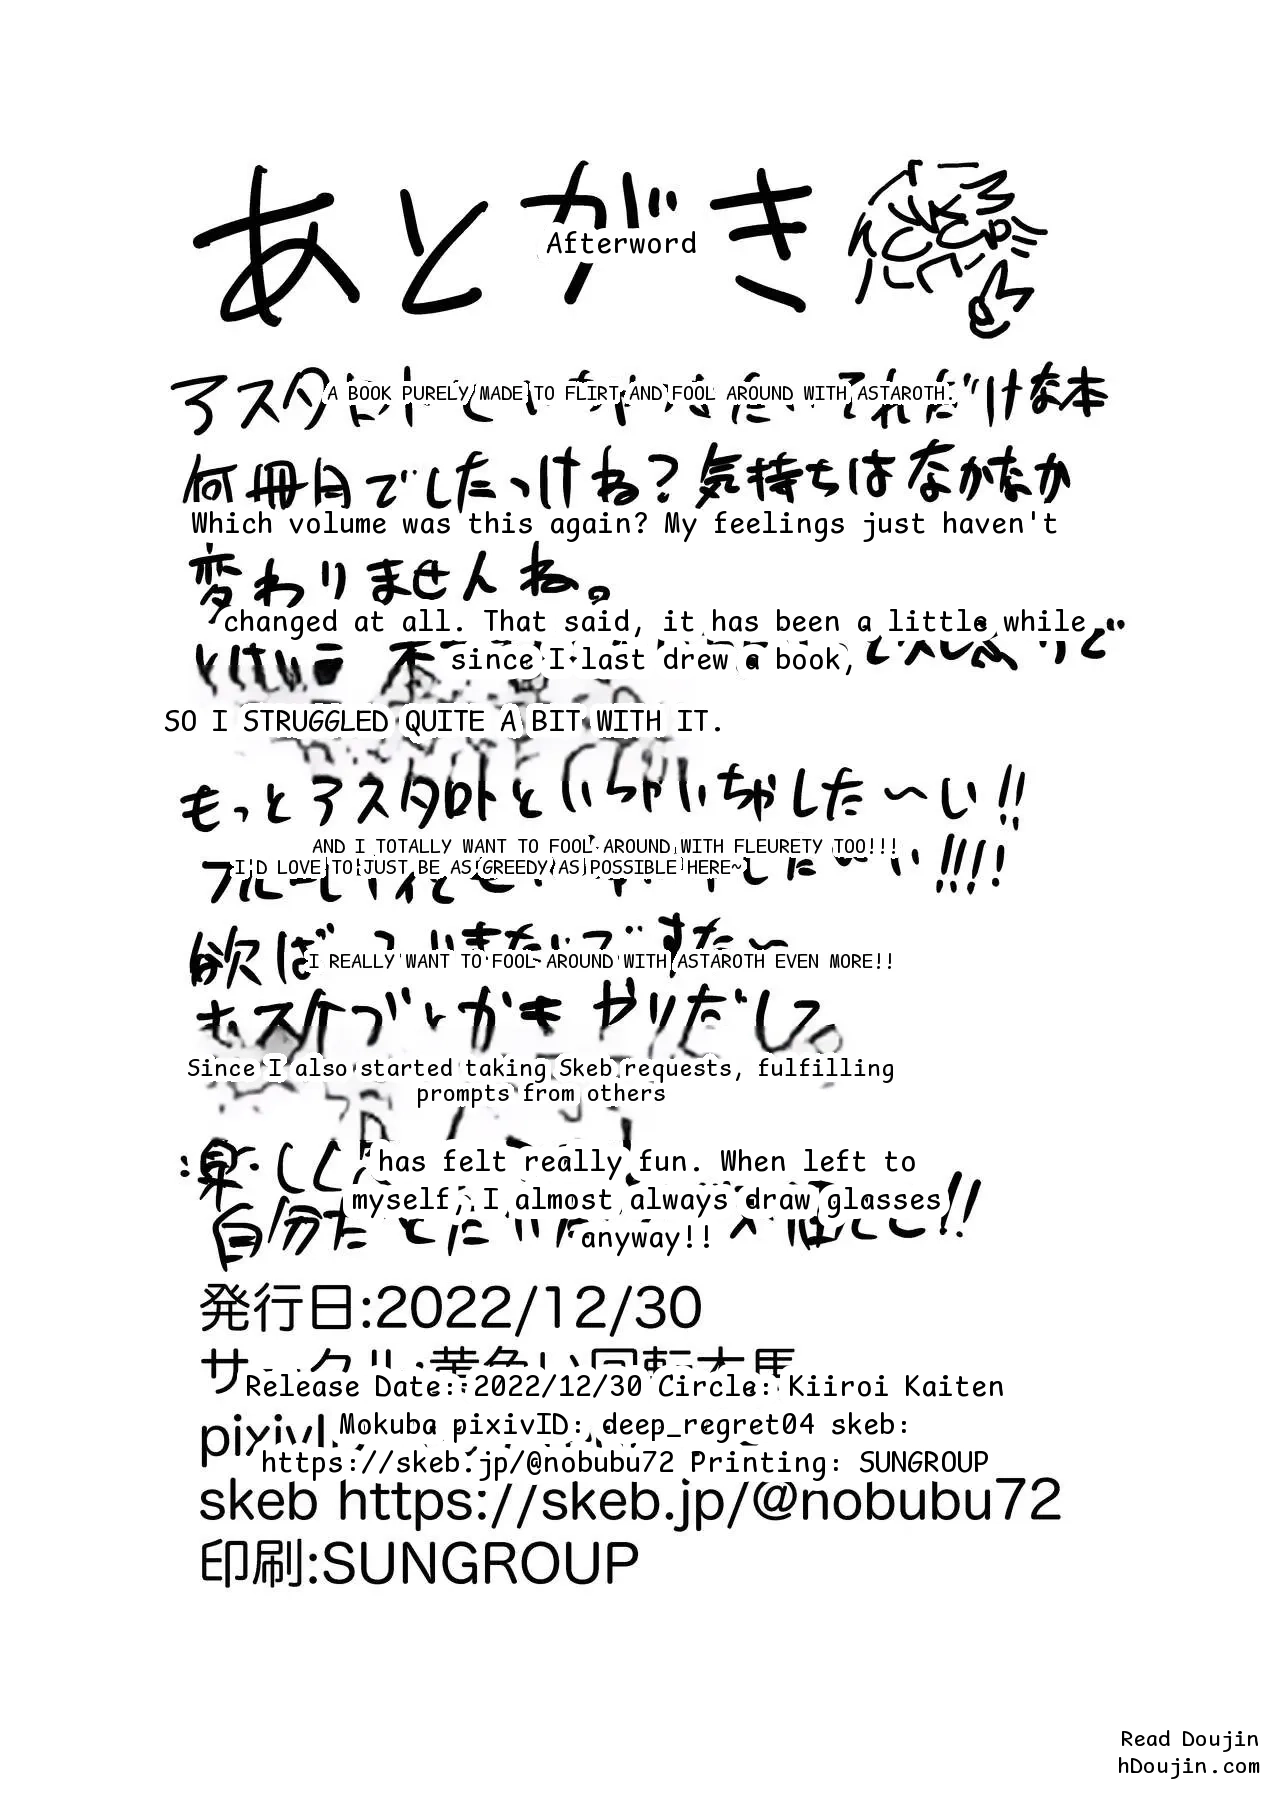 あとがき
Afterword
アスタロト
A BOOK PURELY MADE TO FLIRT AND FOOL AROUND WITH ASTAROTH.
だけな本
何冊目でしたっけね?気持ちはなかなか
Which volume was this again? My feelings just haven't
変わりませんね。
changed at all. That said, it has been a little while
since I last drew a book,
SO I STRUGGLED QUITE A BIT WITH IT.
もっとアスタロトといちゃいちゃした〜い!!
AND I TOTALLY WANT TO FOOL AROUND WITH FLEURETY TOO!!!
I'D LOVE TO JUST BE AS GREEDY AS POSSIBLE HERE~
欲ば
I REALLY WANT TO FOOL AROUND WITH ASTAROTH EVEN MORE!!
Since I also started taking Skeb requests, fulfilling
prompts from others
楽しく
has felt really fun. When left to
myself, I almost always draw glasses
anyway!!
発行日:2022/12/30
Release Date: 2022/12/30 Circle: Kiiroi Kaiten
Mokuba pixivID: deep_regret04 skeb:
https://skeb.jp/@nobubu72 Printing: SUNGROUP
skeb https://skeb.jp/@nobubu72
印刷:SUNGROUP
Read Doujin
hDoujin.com